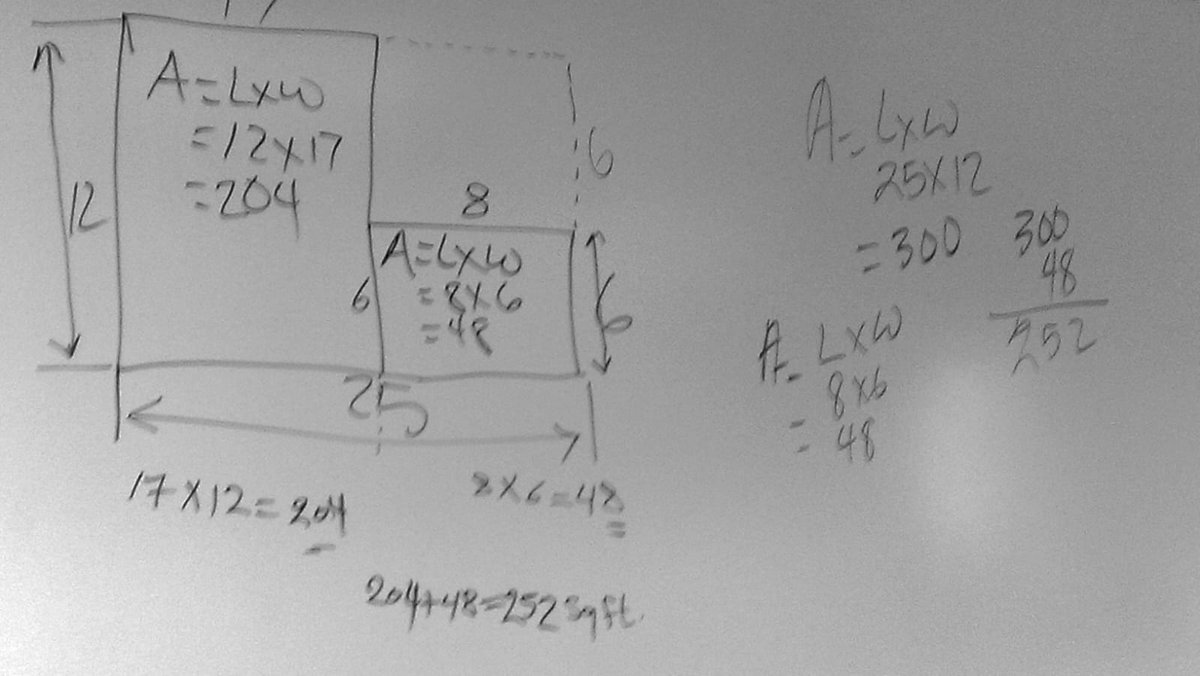 17
A=LxW
=12x17
=204
12
8
6
A=LxW
=8x6
=48
6
6
25
17x12=204
8x6=48
204+48=252 sq ft.
A=LxW
25x12
=300
300
48
252
A=LxW
8x6
=48